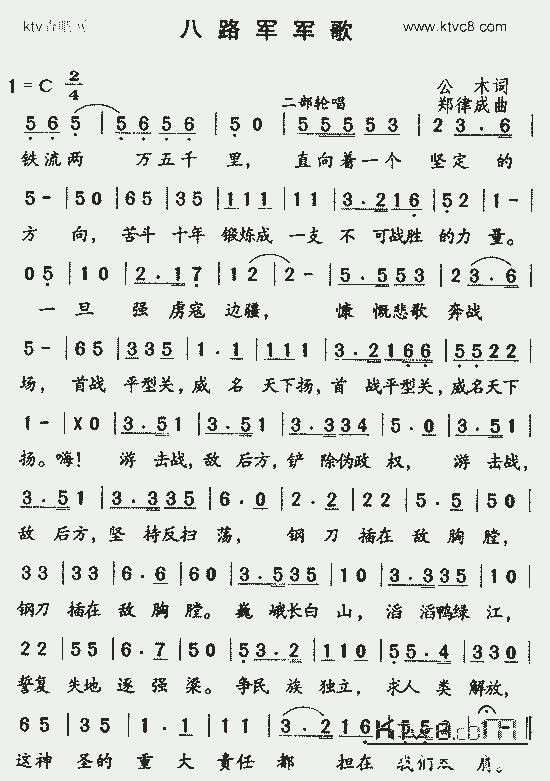 八路军军歌
www.ktvc8.com
1=C 2/4
二部轮唱
公木词
郑律成曲
5 6 5 | 5 6 5 6 | 5 0 | 5 5 5 5 5 3 | 2 3 . 6 |
铁流两 万五千 里， 直向着一个 坚定 的
5 - | 5 0 | 6 5 | 3 5 | 1 1 1 | 1 1 | 3 . 2 1 6 | 5 2 | 1 - |
方 向，苦斗 十年 锻炼成 一支 不 可战胜 的力 量。
0 5 | 1 0 | 2 . 1 7 | 1 2 | 2 - | 5 . 5 5 3 | 2 3 . 6 |
一 旦 强 虏寇 边疆， 慷 慨悲歌 奔战
5 - | 6 5 | 3 3 5 | 1 . 1 | 1 1 1 | 3 . 2 1 6 6 | 5 5 2 2 |
场， 首战 平型关，威 名 天下扬，首 战平型关，威名天下
1 - | X 0 | 3 . 5 1 | 3 . 5 1 | 3 . 3 3 4 | 5 . 0 | 3 . 5 1 |
扬。嗨！ 游 击战，敌 后方，铲 除伪政 权， 游 击战，
3 . 5 1 | 3 . 3 3 5 | 6 . 0 | 2 . 2 | 2 2 | 5 . 5 | 5 0 |
敌 后方，坚 持反扫 荡， 钢 刀 插在 敌 胸 膛，
3 3 | 3 3 | 6 . 6 | 6 0 | 3 . 5 3 5 | 1 0 | 3 . 3 3 5 | 1 0
钢刀 插在 敌 胸 膛。 巍 峨长白 山， 滔 滔鸭绿 江，
2 2 | 5 5 | 6 . 7 | 5 0 | 5 3 . 2 | 1 1 0 | 5 5 . 4 | 3 3 0
誓复 失地 逐 强 梁。 争民 族 独立， 求人 类 解放，
6 5 | 3 5 | 1 . 1 | 1 1 | 3 . 2 1 6 | 5 5
这神 圣的 重 大 責任 都 担在 我们